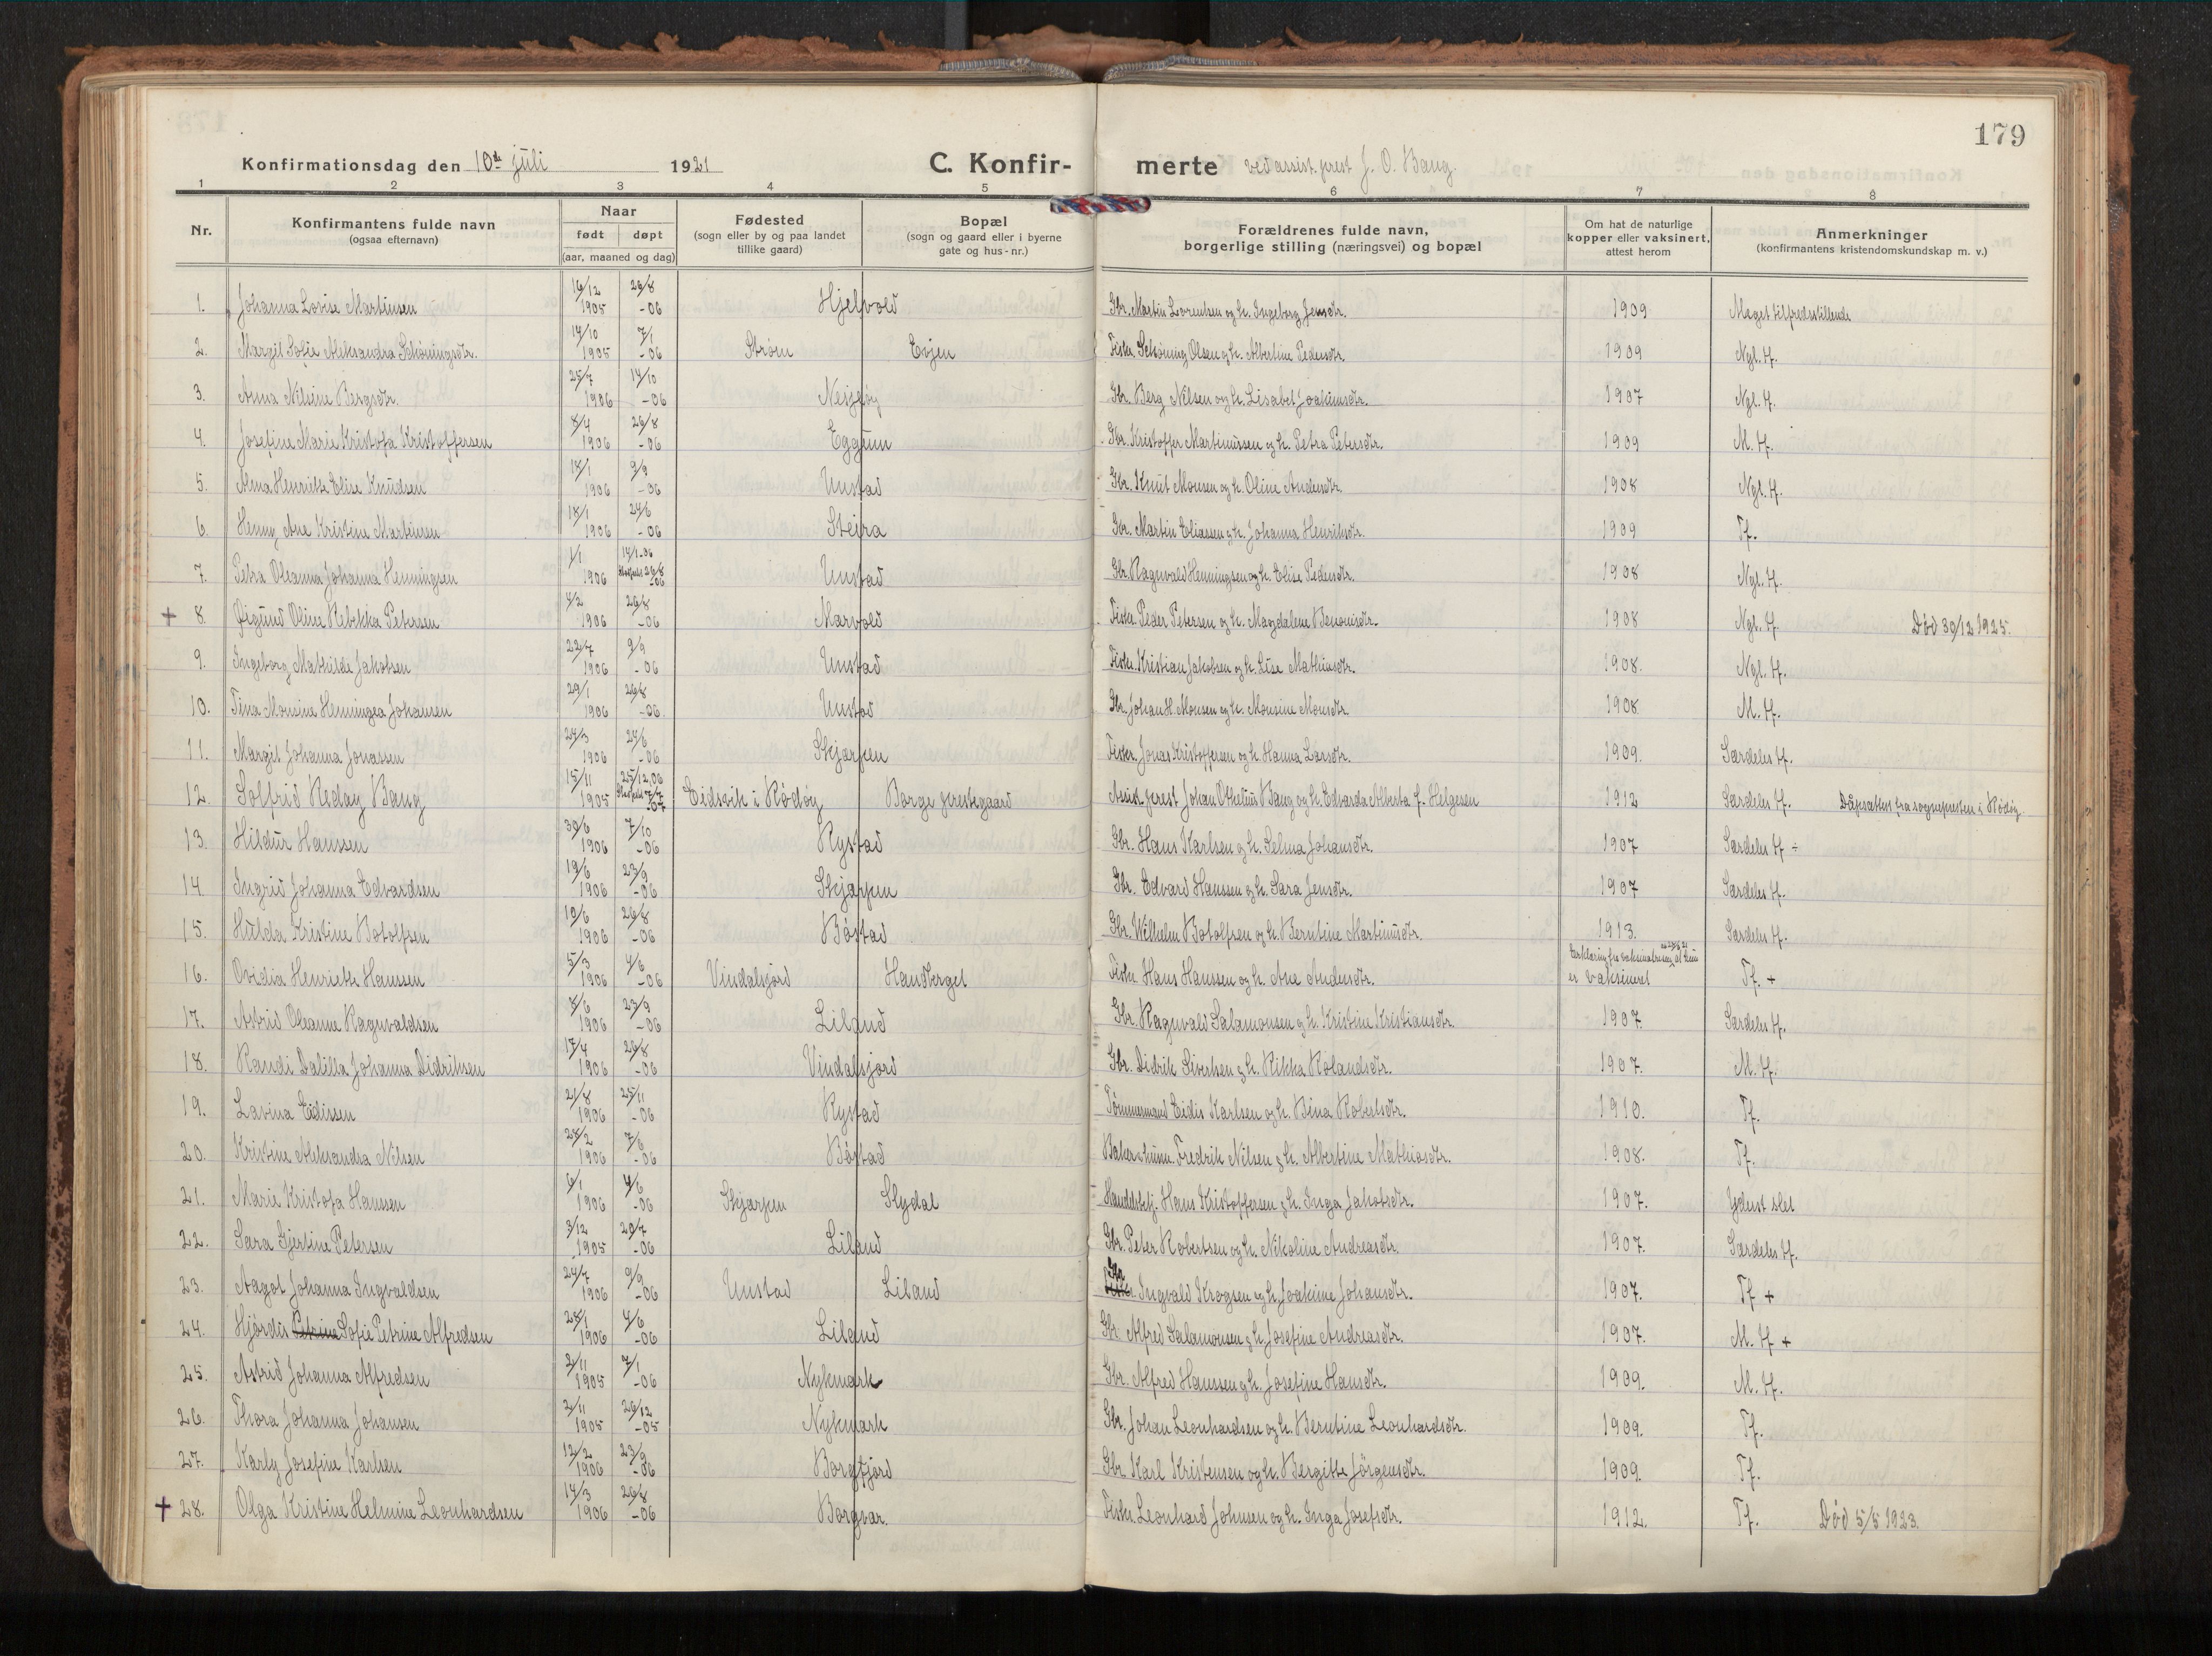 179
Konfirmationsdag den 10de juli 1921 C. Konfir- merte ved assist. prest J. O. Bang.
1 2 3 4 5 6 7 8
Nr. Konfirmantens fulde navn (ogsaa efternavn) Naar født døpt (aar, maaned og dag) Fødested (sogn eller by og paa landet tillike gaard) Bopæl (sogn og gaard eller i byerne gate og hus-nr.) Forældrenes fulde navn, borgerlige stilling (næringsvei) og bopæl Om hat de naturlige kopper eller vaksinert, attest herom Anmerkninger (konfirmantens kristendomskundskap m. v.)
1. Johanna Lovise Martinsen 16/12 1905 26/8 -06 Hjelvold Gbr. Martin Lorentsen og h. Ingeborg Jensdtr. 1909 Meget tilfredsstillende
2. Margit Sofie Aleksandra Schøningsdtr. 14/10 1905 7/1 -06 Strøm Evjen Fisker Schøning Olsen og h. Albertine Pedersdtr. 1909 Ngl. tf.
3. Anna Nilsine Bergsdtr. 25/7 1906 14/10 -06 Nesje Gbr. Berg Nilsen og h. Lisabet Joakimsdtr. 1907 Ngl. tf.
4. Josefine Marie Kristofa Kristoffersen 8/4 1906 26/8 -06 Eggum Gbr. Kristoffer Martinussen og h. Petra Petersdtr. 1909 M. tf.
5. Alma Henriette Elise Knudsen 18/1 1906 9/9 -06 Unstad Gbr. Knut Monsen og h. Oline Andersdtr. 1908 Ngl. tf.
6. Henny Ane Kristine Martinsen 18/1 1906 24/6 -06 Steira Gbr. Martin Eliassen og h. Johanna Henriksdtr. 1909 Tf.
7. Petra Oleanna Johanna Henningsen 1/1 1906 14/1-06 26/8 -06 Unstad Gbr. Ragnvald Henningsen og h. Elise Pedersdtr. 1908 Ngl. tf.
+ 8. Øigund Oline Ribekka Petersen 4/2 1906 26/8 -06 Marvold Fisker Peder Petersen og h. Magdalene Benonisdtr. 1908 Ngl. tf. Død 30/12 1925.
9. Ingeborg Mathilde Jakobsen 22/7 1906 9/9 -06 Unstad Fisker Kristian Jakobsen og h. Lise Mathiasdtr. 1908. Ngl. tf.
10. Tina Monsine Henningea Johansen 29/1 1906 26/8 -06. Unstad Gbr. Johan H. Monsen og h. Monsine Monsdtr. 1908 M. tf.
11. Margit Johanna Jonassen 24/3 1906 24/6 -06 Skjærpen Fisker Jonas Kristoffersen og h. Hanna Larsdtr. 1909. Særdeles tf.
12. Solfrid Reday Bang 15/11 1905 25/12.06 7/7 -07 Eidsvik i Rødøy Borge prestegaard Assist. prest Johan Othelius Bang og h. Edvarda Alberta f. Helgesen 1912 Særdeles tf. Dåpsattest fra sognepresten i Rødøy
13. Hildur Hanssen 30/6 1906 7/10 -06 Rystad Gbr. Hans Karlsen og h. Selma Johansdtr. 1907 Særdeles tf ÷
14 Ingrid Johanna Edvardsen 19/6 1906 23/9 -06 Skjærpen Gbr. Edvard Hanssen og h. Sara Jensdtr. 1907 Særdeles tf.
15. Hulda Kristine Botolfsen 10/6 1906 26/8 -06 Bøstad Gbr. Wilhelm Botolfsen og h. Berntine Martinusdtr. 1913. Særdeles tf.
16. Ovidia Henriette Hanssen 5/3 1906 4/6 -06 Vindalsjord Handberget Fisker Hans Hanssen og h. Ane Andersdtr. Erklæring fra at hun er vaksineret Tf. +
17. Astrid Oleanne Ragnvaldsen 8/6 1906 23/9 -06 Liland Gbr. Ragnvald Salamonsen og h. Kristine Kristiansdtr. 1907. Særdeles tf.
18. Randi Dalilla Johanna Didriksen 17/4 1906 26/8 -06 Vindalsjord Gbr. Didrik Sivertsen og h. Rikka Rolandsdtr. 1907. M. tf.
19. Lavina Eidissen 21/8 1906 25/11 -06 Rystad Tømmermand Eidis Karlsen og h. Bina Robertsdtr. 1910. Tf.
20. Kristine Aleksandra Nilsen 28/2 1906 7/6 -06 Bøstad Fredrik Nilsen og h. Albertine Mathiasdtr. 1908. Tf.
21. Marie Kristofa Hanssen 6/1 1906 4/6 -06 Skjærpen Slydal Handelsbetj. Hans Kristoffersen og h. Inga Jakobsdtr. 1907. Yderst slet
22. Sara Gjertine Petersen 3/12 1905 29/7 -06 Liland Gbr. Peter Robertsen og h. Nikoline Andreasdtr. 1907. Særdeles tf.
23. Aagot Johanna Ingvaldsen 24/7 1906 9/9 -06 Unstad Liland Gbr Ingvald Krogsen og h. Joakime Johansdtr. 1907. Tf +
24. Hjørdis Petrine Sofie Petrine Alfredsen 28/1 1906 4/6 -06 Liland Gbr. Alfred Salamonsen og h. Josefine Andreasdtr. 1907. M. tf +
25. Astrid Johanna Alfredsen 2/11 1905 7/1 -06 Nykmark Gbr. Alfred Hanssen og h. Josefine Hansdtr. 1909. M. tf.
26. Thora Johanna Johansen 2/11 1905 26/12 -05 Nykmark Gbr. Johan Leonhardsen og h. Berntine Leonhardsdtr. 1909. Tf.
27. Karly Josefine Karlsen 12/2 1906 23/9 -06 Borgfjord Gbr Karl Kristensen og h. Bergitte Jørgensdtr. 1909. Tf.
+ 28. Olga Kristine Helmine Leonhardsen 14/3 1906 26/8 -06 Borgvær. Fisker Leonhard Johnsen og h. Inga Josefsdtr. 1912. Tf. Død 5/5 1923.